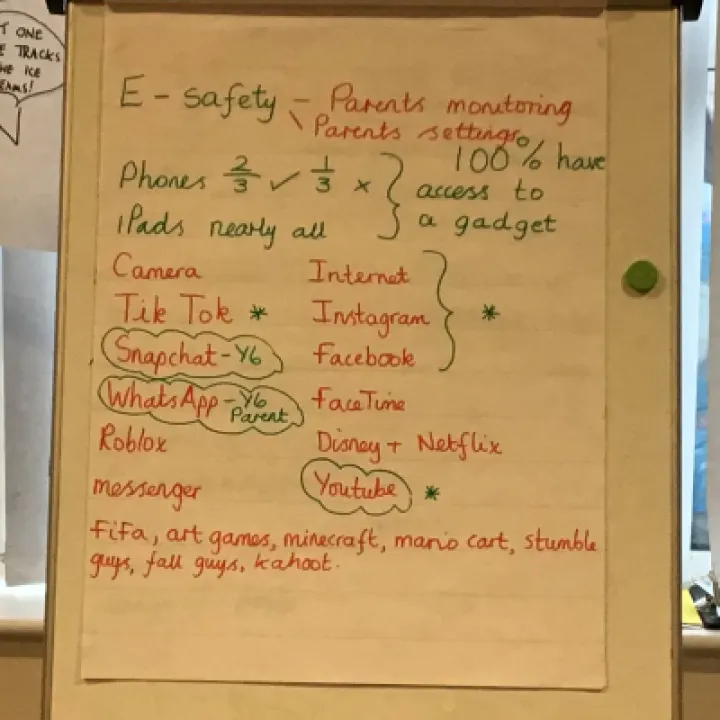 T ONE
E TRACKS
HE ICE
EAMS!
E - safety - Parents monitoring
\ Parents settings
Phones 2/3 ✓ 1/3 x } 100% have
access to
iPads nearly all a gadget
Camera Internet
Tik Tok * Instagram } *
Snapchat - Y6 Facebook
WhatsApp - Y6 FaceTime
Parent
Roblox Disney + Netflix
messenger Youtube *
FiFa, art games, minecraft, mario cart, stumble
guys, fall guys, kahoot.